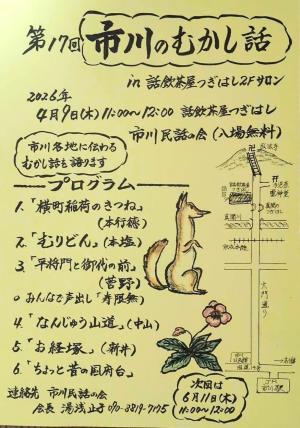 第17回 市川のむかし話
in 話飲茶屋つぎはし2Fサロン
2026年
4月9日(木)11:00〜12:00 話飲茶屋つぎはし
市川民話の会(入場無料)
市川各地に伝わる
むかし話を語ります
プログラム
1.「横町稲荷のきつね」
(本行徳)
2.「むりどん」(本塩)
3.「平将門と御代の前」
(菅野)
○ みんなで声出し「寿限無」
4.「なんじゅう山道」(中山)
5.「お経塚」(新井)
6.「ちょっと昔の国府台」
連絡先 市川民話の会
会長 湯浅止子 090-3819-7175
次回は
6月11日(木)
11:00〜12:00
弘法寺
真間川
大門通り
国道14号
JR
市川駅